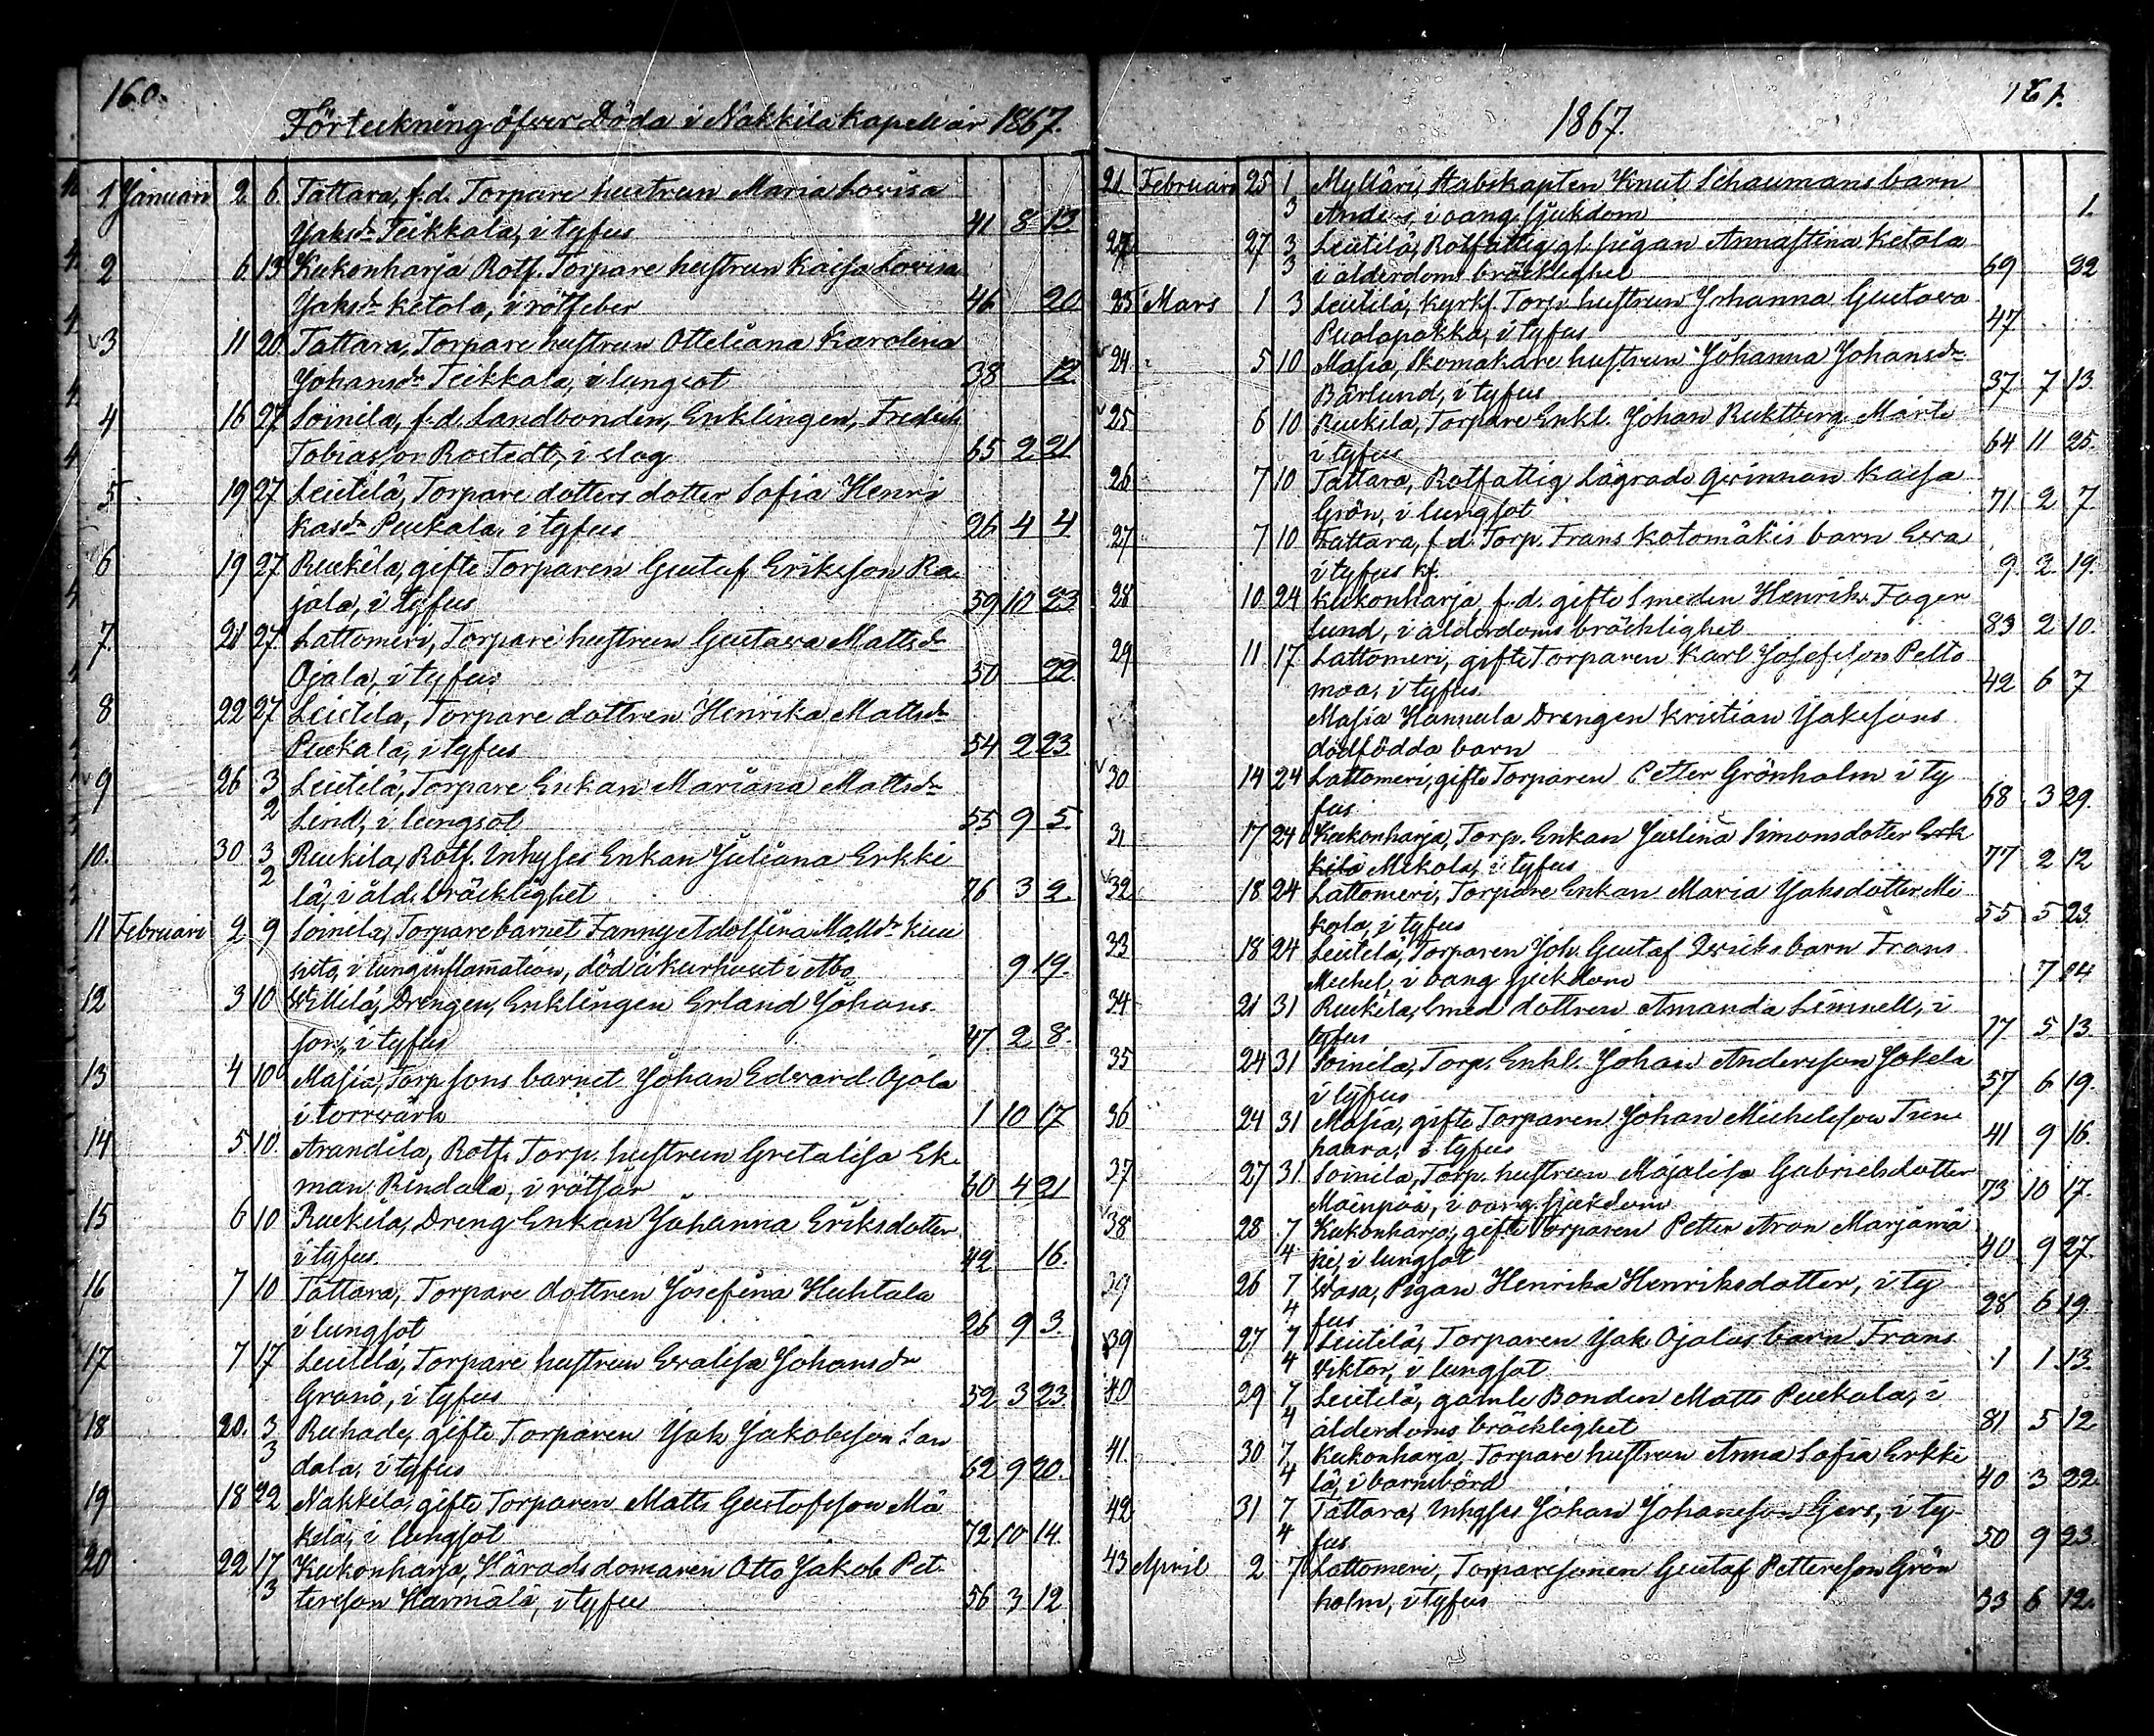 160.
Förteckning öfver Döda i Nakkila Kapell år 1867.
1 Januari 2 6 Tattara, f.d. Torpare hustrun Maria Lovisa
Jaksdr Teikkala, i tyfus 41 8 13.
2 6 13 Kukonharja Rotf. Torpare hustrun Kaisa Lovisa
Jaksdr Ketola, i rötfeber 46 20
3 11 20 Tattara, Torpare hustrun Otteliana Karolina
Johansdr Teikkala, i lungsot 38 12.
4 16 27 Soinila, f.d. Landbonden, Enklingen, Fredrik
Tobiasson Rostedt, i slag 65 2 21
5 19 27 Leistilä, Torpare dotters dotter Sofia Henri
kasdr Puckala, i tyfus 26 4 4
6 19 27 Ruskila, gifte Torparen Gustaf Eriksson Ra
jala, i tyfus 39 10 23
7. 21 27 Lattomeri, Torpare hustrun Gustava Mattsdr
Ojala, i tyfus 30 22.
8 22 27 Leistilä, Torpare dottren Henrika Mattsdr
Puckala, i tyfus 54 2 23
9 26 3/2 Leistilä, Torpare Enkan Mariana Mattsdr
Lind, i lungsot 55 9 5.
10. 30 3/2 Ruskila, Rotf. Inhyses Enkan Juliana Erkki
lä, i åld. bräcklighet 76 3 2.
11 Februari 2 9 Soinila, Torparebarnet Fanny Adolfina Mattsdr
i lunginflamation, död å kurhuset i Åbo 9 19.
12 3 10 Willilä, Drengen, Enklingen Erland Johans
son, i tyfus 47 2 8.
13 4 10 Masia, Torp. sons barnet Johan Edvard Ojala
i torrvärk 1 10 17
14 5 10. Arandila, Rotf. Torp. hustrun Gretalisa Ek
man Rindala, i rötsår 60 4 21
15 6 10 Ruskila, Dreng Enkan Johanna Eriksdotter
i tyfus 42 16.
16 7 10 Tattara, Torpare dottren Josefina Huhtala
i lungsot 26 9 3.
17 7 17 Leistilä, Torpare hustrun Evalisa Johansdr
Granö, i tyfus 52 3 23.
18 20. 3/3 Ruhade, gifte Torparen Jak Jakobsson San
dala, i tyfus 62 9 20.
19 18 22 Nakkila, gifte Torparen Matts Gustafsson Mä
kelä, i lungsot 72 10 14.
20 22 17/3 Kukonharja, Häradsdomaren Otto Jakob Pet
tersson Härmälä, i tyfus 56 3 12
161.
1867.
21 Februari 25 1/3 Mylläri, Stabskapten Knut Schaumans barn
Anders, i oang. sjukdom 1.
27 3/3 Leistilä, Rotfattig gl. pigan Annastina Ketola
i ålderdoms bräcklighet 69 22
23 Mars 1 3 Leistilä, kyrkf. Torp. hustrun Johanna Gustava
Puolapakka, i tyfus 47
24 5 10 Masia, Skomakare hustrun Johanna Johansdr
Bärlund, i tyfus 37 7 13.
25 6 10 Ruskila, Torpare Enkl. Johan Märte
i tyfus 64 11 25.
26 7 10 Tattara, Rotfattig Lägrade qvinnan Kaisa
Grön, i lungsot 71 2 7
27 7 10 Tattara, f.d. Torp. Frans Kotomäkis barn Eva
i tyfus 9 2 19.
28 10 24 Kukonharja, f.d. gifte Smeden Henrik Fager
lund, i ålderdoms bräcklighet 83 2 10.
29 11 17 Lattomeri, gifte Torparen Karl Josefsson Pelto
maa, i tyfus 42 6 7
Masia Hannula Drengen Kristian Jakssons
dödfödda barn
30 14 24 Lattomeri, gifte Torparen Petter Grönholm i ty
fus 68 3 29.
31 17 24 Kukonharja, Torp. Enkan Justina Simonsdotter Erk
kilä Mikola, i tyfus 77 2 12
32 18 24 Lattomeri, Torpare Enkan Maria Jaksdotter Mi
kola, i tyfus 55 5 23.
33 18 24 Leistilä, Torparen Joh. Gustaf barn Frans
Michel, i oang sjukdom 7 24
34 21 31 Ruskila, Smed dottren Amanda Limnell, i
tyfus 17 5 13.
35 24 31 Soinila, Torp. Enkl. Johan Andersson Jokela
i tyfus 57 6 19.
36 24 31 Masia, gifte Torparen Johan Michelsson
haara, i tyfus 41 9 16.
37 27 31 Soinila, Torp. hustrun Majalisa Gabrielsdotter
Mäenpää, i oang. sjukdom 73 10 17.
38 28 7/4 Kukonharja, gifte Torparen Petter Aron Marjamä
ki, i lungsot 40 9 27.
39 26 7/4 Wasa, Pigan Henrika Henriksdotter, i ty
fus 28 6 19.
39 27 7/4 Leistilä, Torparen Jak Ojalas barn Frans
Viktor, i lungsot 1 1 13.
40 29 7/4 Leistilä, gamle Bonden Matts Puckala, i
ålderdoms bräcklighet 81 5 12
41. 30 7/4 Kukonharja, Torpare hustrun Anna Sofia Erkki
lä, i barnsbörd 40 3 22.
42 31 7/4 Tattara, Inhyses Johan Johansson Gers, i ty-
fus 50 9 23.
43 April 2 7 Lattomeri, Torparesonen Gustaf Pettersson Grön
holm, i tyfus 33 6 12.